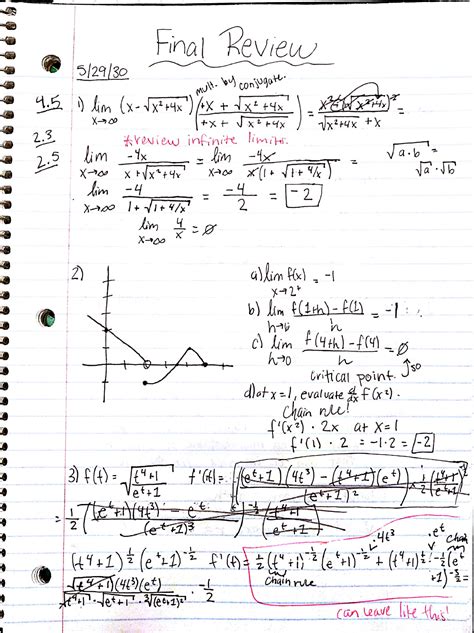 Final Review
5/29/30
mult. by conjugate.
4.5 1) lim x→∞ (x - √x²+4x) (+x + √x²+4x / +x + √x²+4x) = / √x²+4x + x =
2.3 *review infinite limits.
2.5 lim x→∞ -4x / x+√x²+4x = lim x→∞ -4x / x(1+√1+4/x) = √a·b = √a · √b
lim x→∞ -4 / 1+√1+4/x = -4/2 = -2
lim x→∞ 4/x = ∅
2) a) lim f(x) = -1
x→2⁺
b) lim h→0 f(1+h)-f(1) / h = -1
c) lim h→0 f(4+h)-f(4) / h = ∅
critical point. so
d) at x=1, evaluate d/dx f(x²).
chain rule!
f'(x²) · 2x at x=1
f'(1) · 2 = -1·2 = -2
3) f(t) = √t⁴+1 / √eᵗ+1 f'(t) = (eᵗ+1)(4t³) - (t⁴+1)(eᵗ) / (eᵗ+1)²
= 1/2
(t⁴+1)^½ (eᵗ+1)^-½ f'(t) = ½(t⁴+1)^-½ · 4t³ (eᵗ+1)^-½ + (t⁴+1)^½ · -½(eᵗ+1)^-3/2 = eᵗ chain
chain rule
√(t⁴+1)(4t³)(eᵗ) · -½
can leave like this!